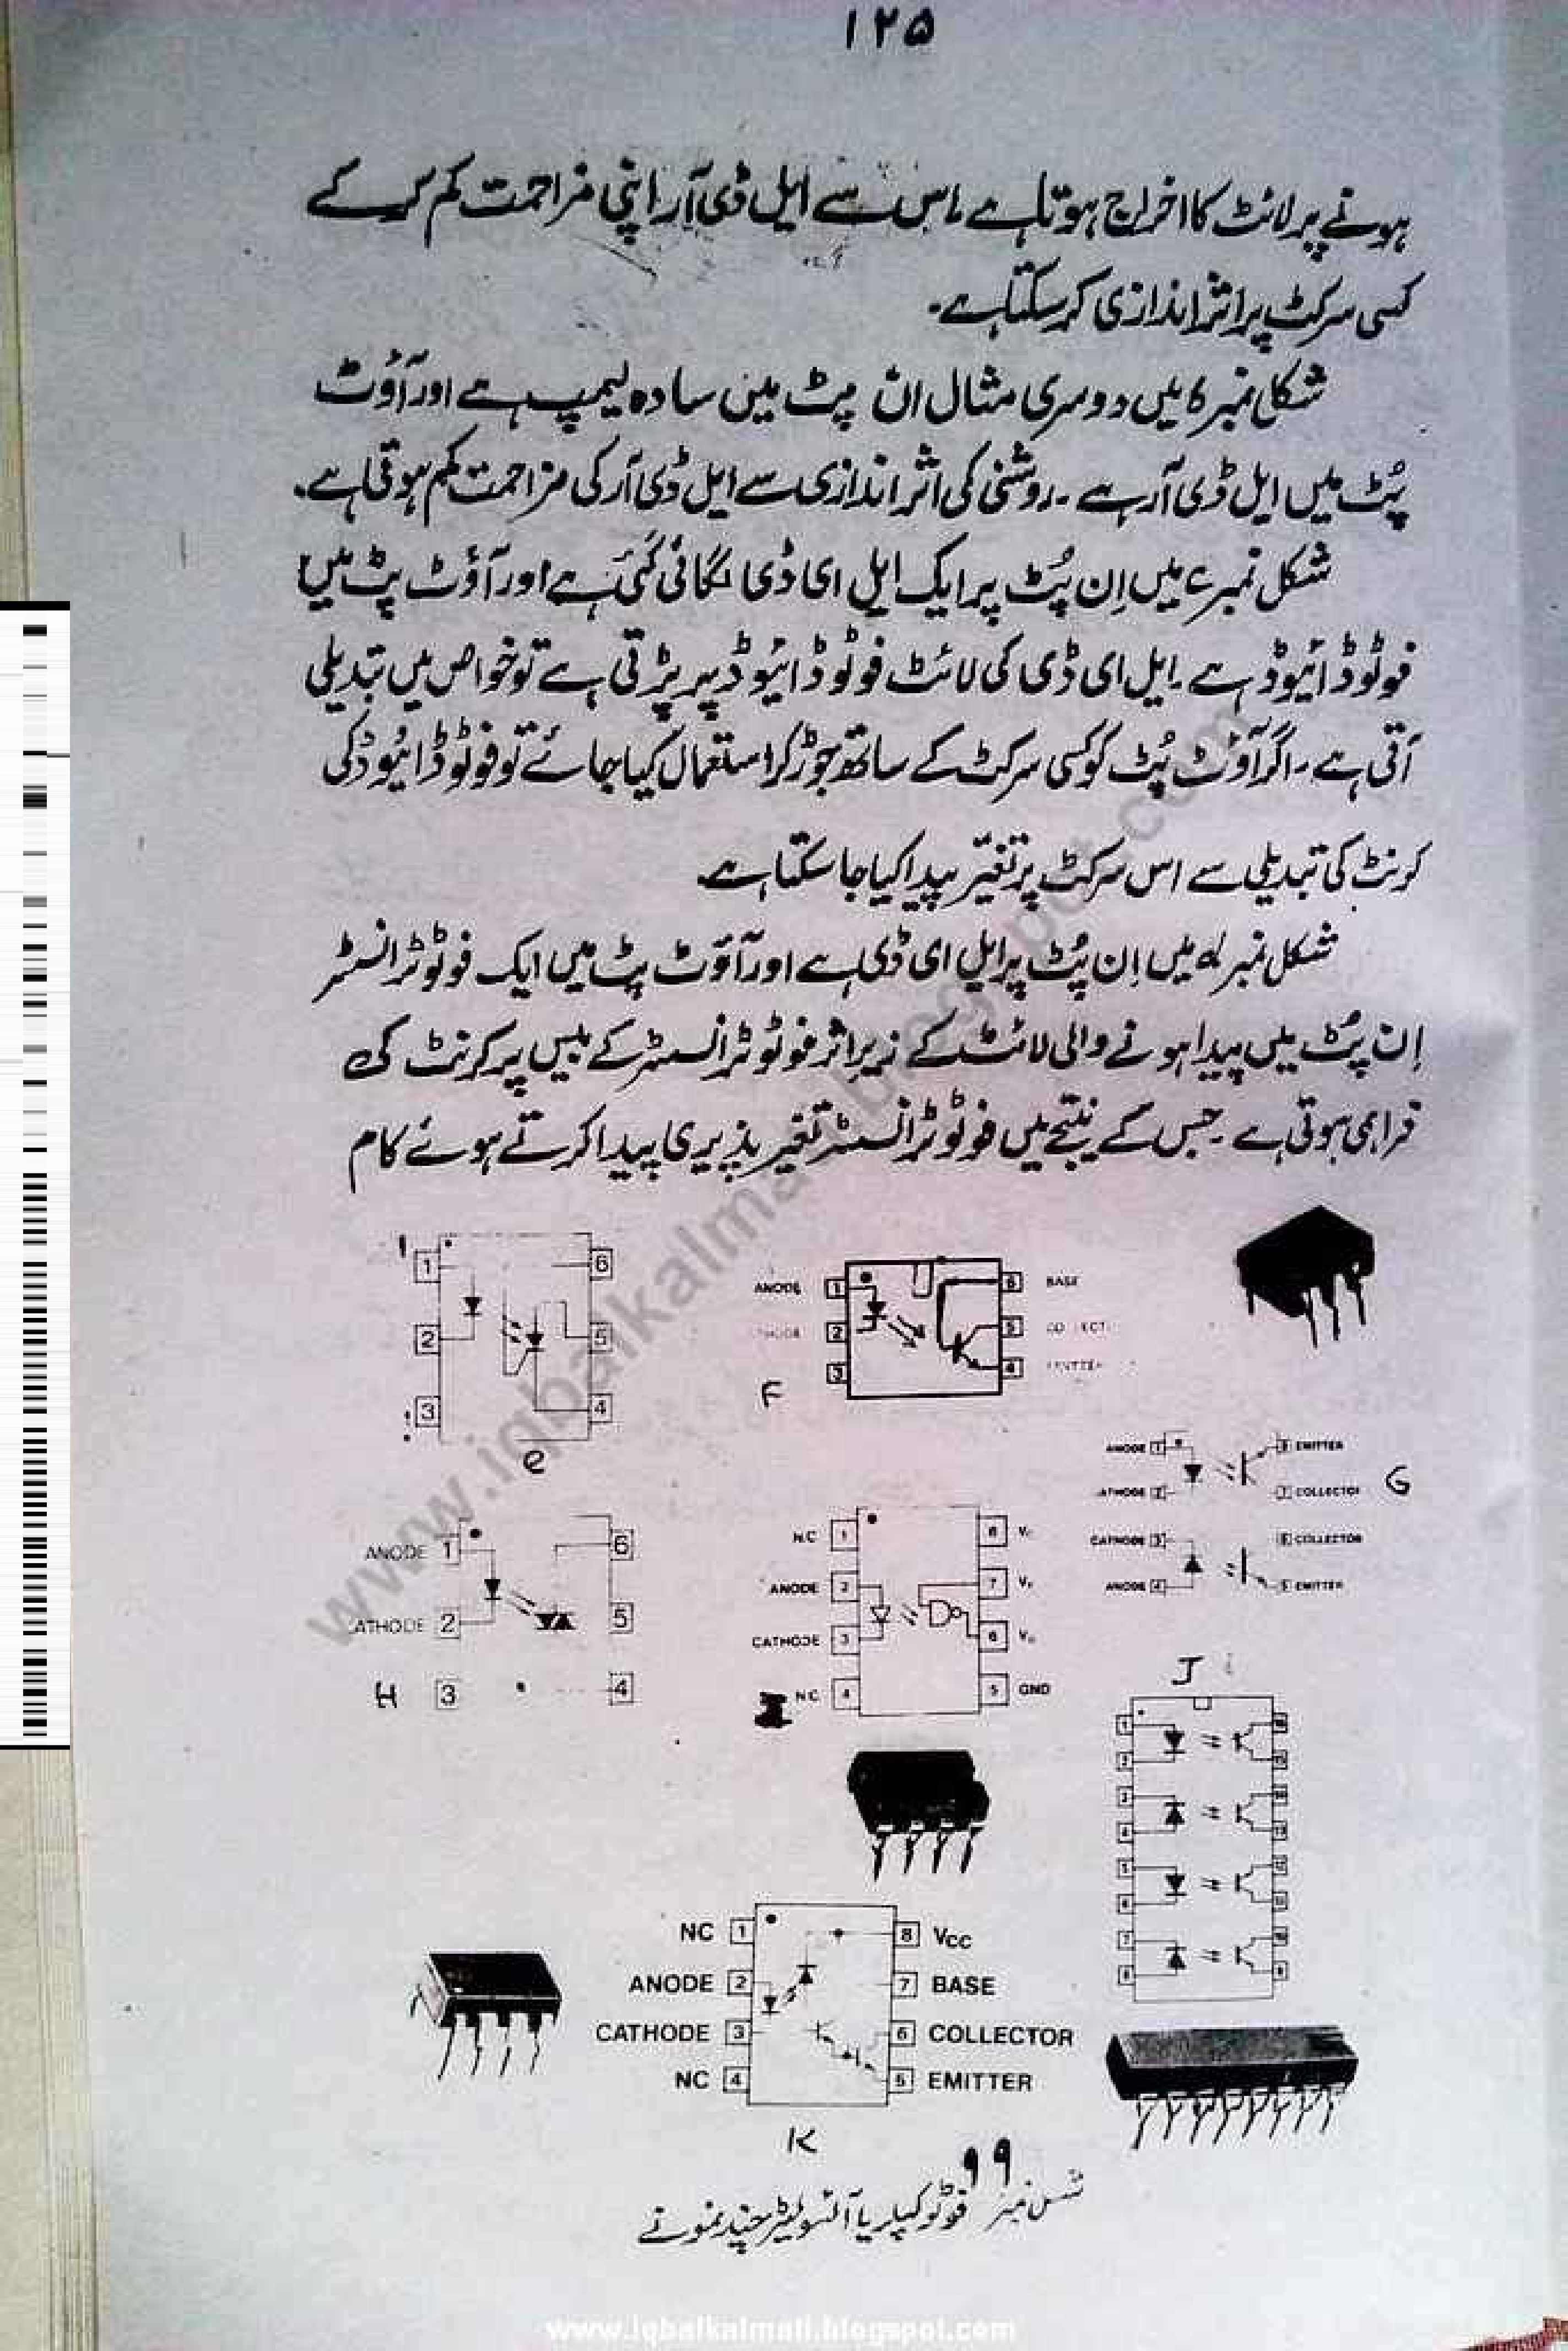 ۱۲۵
ہونے پر لائٹ کا اخراج ہوتا ہے ۔اس سے ایل ڈی آر اپنی مزاحمت کم کرکے
کسی سرکٹ پر اثر اندازی کر سکتا ہے۔
شکل نمبر میں دوسری مثال ان پٹ میں سادہ لیمپ ہے اور آؤٹ
پُٹ میں ایل ڈی آر ہے ۔ روشنی کی اثر اندازی سے ایل ڈی آر کی مزاحمت کم ہوتی ہے۔
شکل نمبر میں اِن پُٹ پر ایک ایل ای ڈی لگائی گئی ہے اور آؤٹ پٹ میں
فوٹو ڈائیوڈ ہے ۔ ایل ای ڈی کی لائٹ فوٹو ڈائیوڈ پر پڑتی ہے تو خواص میں تبدیلی
آتی ہے ۔ اگر آؤٹ پُٹ کو کسی سرکٹ کے ساتھ جوڑ کر استعمال کیا جائے تو فوٹو ڈائیوڈ کی
کرنٹ کی تبدیلی سے اس سرکٹ پر تغیّر پیدا کیا جا سکتا ہے۔
شکل نمبر میں اِن پُٹ پر ایل ای ڈی ہے اور آؤٹ پٹ میں ایک فوٹو ٹرانسسٹر
اِن پُٹ میں پیدا ہونے والی لائٹ کے زیرِ اثر فوٹو ٹرانسسٹر کے بیس پر کرنٹ کی
فراہمی ہوتی ہے ۔ جس کے نتیجے میں فوٹو ٹرانسسٹر تغیر پذیری پیدا کرتے ہوئے کام
1 6
2 5
3 4
e
ANODE 1 6 BASE
2 5
3 4
F
ANODE 1 EMITTER
CATHODE 2 7 COLLECTOR
G
CATHODE 3 6 COLLECTOR
ANODE 4 5 EMITTER
ANODE 1 6
CATHODE 2 5
H 3 4
NC 1 8
ANODE 2 7
CATHODE 3 6
I NC 4 5 GND
J
1
2
3
4
5
6
7
8
NC 1 8 VCC
ANODE 2 7 BASE
CATHODE 3 6 COLLECTOR
NC 4 5 EMITTER
K
شکل نمبر ۹۹ فوٹو کپلر یا آئسولیٹر چند نمونے
www.iqbalkalmati.blogspot.com
www.iqbalkalmati.blogspot.com